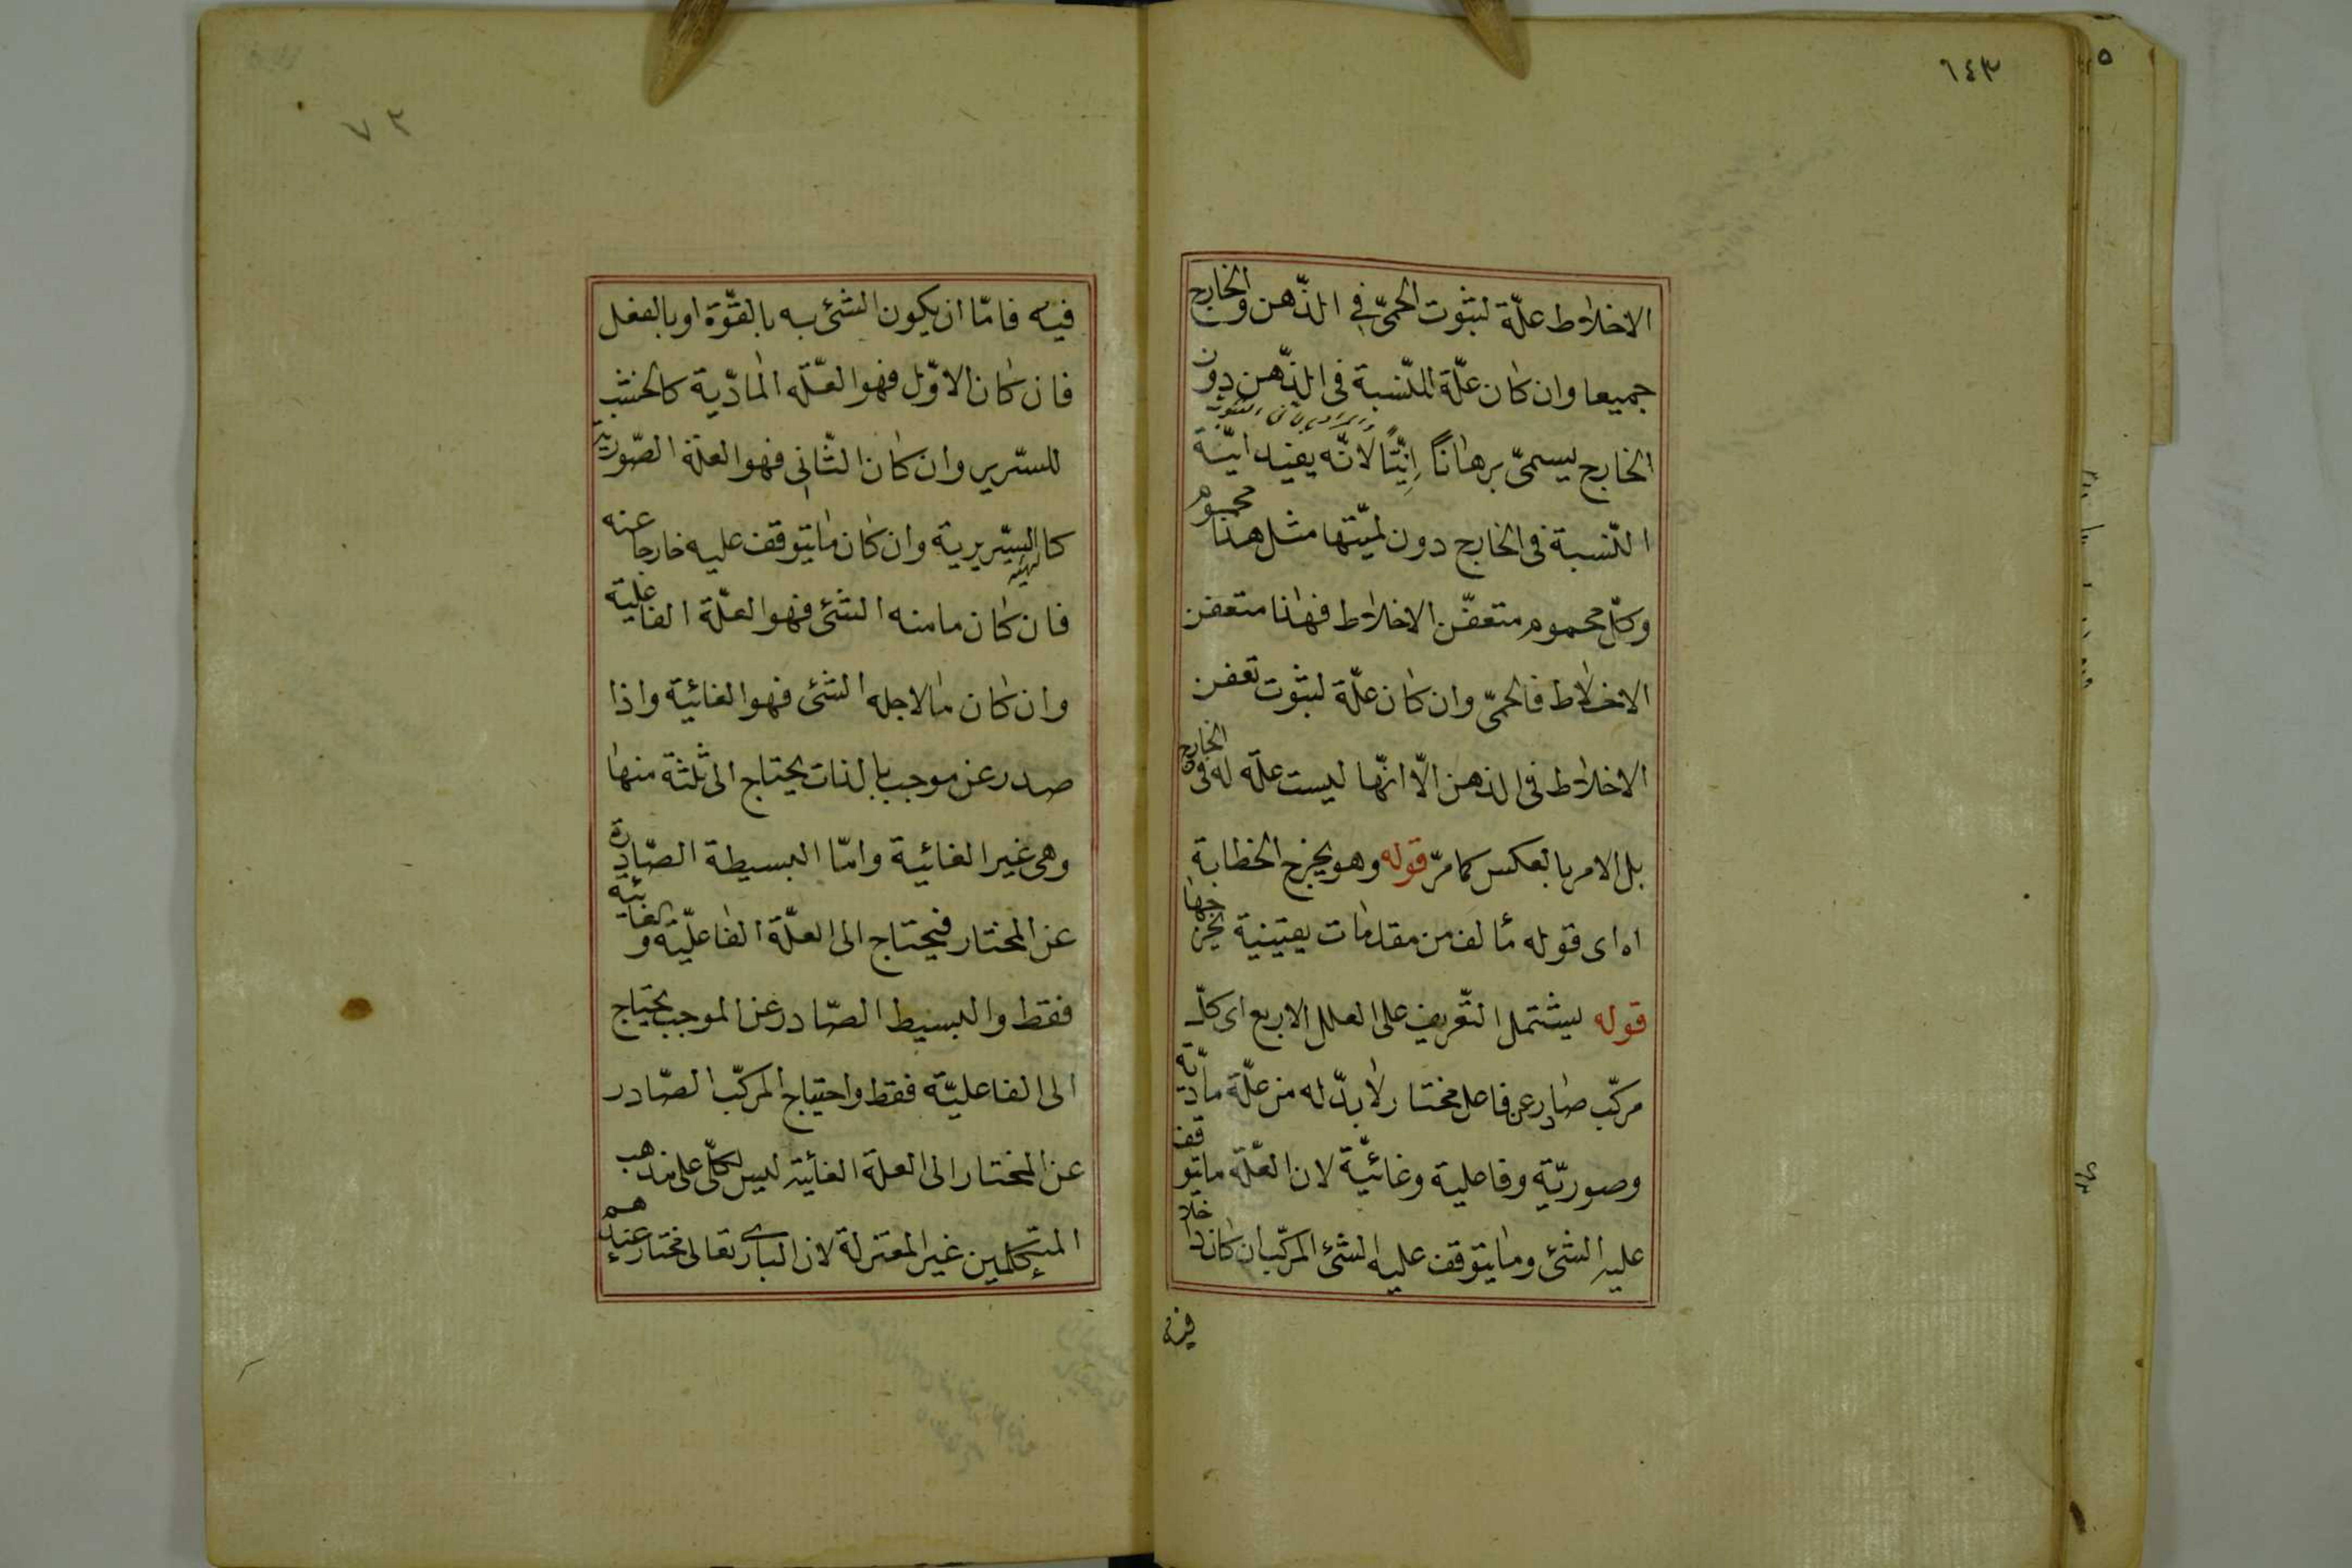 ٦٤٣
الاخلاط علّة لثبوت الحمّى في الذّهن والخارج
جميعا وان كان علّة للنّسبة فى الذّهن دون
الخارج يسمىّ برهانًا اِنِّيًّا لانّه يفيد انيّة
النّسبة فى الخارج دون لميّتها مثل هذا محموم
وكلّ محموم متعفّن الاخلاط فهذا متعفن
الاخلاط فالحمّى وان كان علّة لثبوت تعفن
الاخلاط فى الذهن الّا انّها ليست علّة له فى الخارج
بل الامر بالعكس كما مرّ قوله وهو يخرج الخطابة
اه اى قوله مألف من مقدمات يقينية يخرجها
قوله ليشتمل التّعريف على العلل الاربع اى كلّ
مركّب صادر عن فاعل مختار لا بدّ له من علّة مادّية
وصوريّة وفاعلية وغائيّة لان العلّة مايتوقف
عليه الشئ ومايتوقف عليه الشئ المركّب ان كان داخلا
فيه
٧٣
فيه فامّا ان يكون الشئ به بالقوّة او بالفعل
فان كان الاوّل فهو العلّة المادّية كالخشب
للسّرير وان كان الثّانى فهو العلّة الصّورية
كالسّريرية وان كان مايتوقف عليه خارجا عنه
فان كان مامنه الشئ فهو العلّة الفاعلية
وان كان مالاجله الشئ فهو الغائية واذا
صدر عن موجب بالذات يحتاج الى ثلثة منها
وهى غير الغائية وامّا البسيطة الصّادرة
عن المختار فيحتاج الى العلّة الفاعليّة والغائية
فقط والبسيط الصّادر عن الموجب يحتاج
الى الفاعليّة فقط واحتياج المركّب الصّادر
عن المختار الى العلة الغائية ليس لكلّ على مذهب
المتكلمين غير المعتزلة لان البارى تعالى مختار عندهم